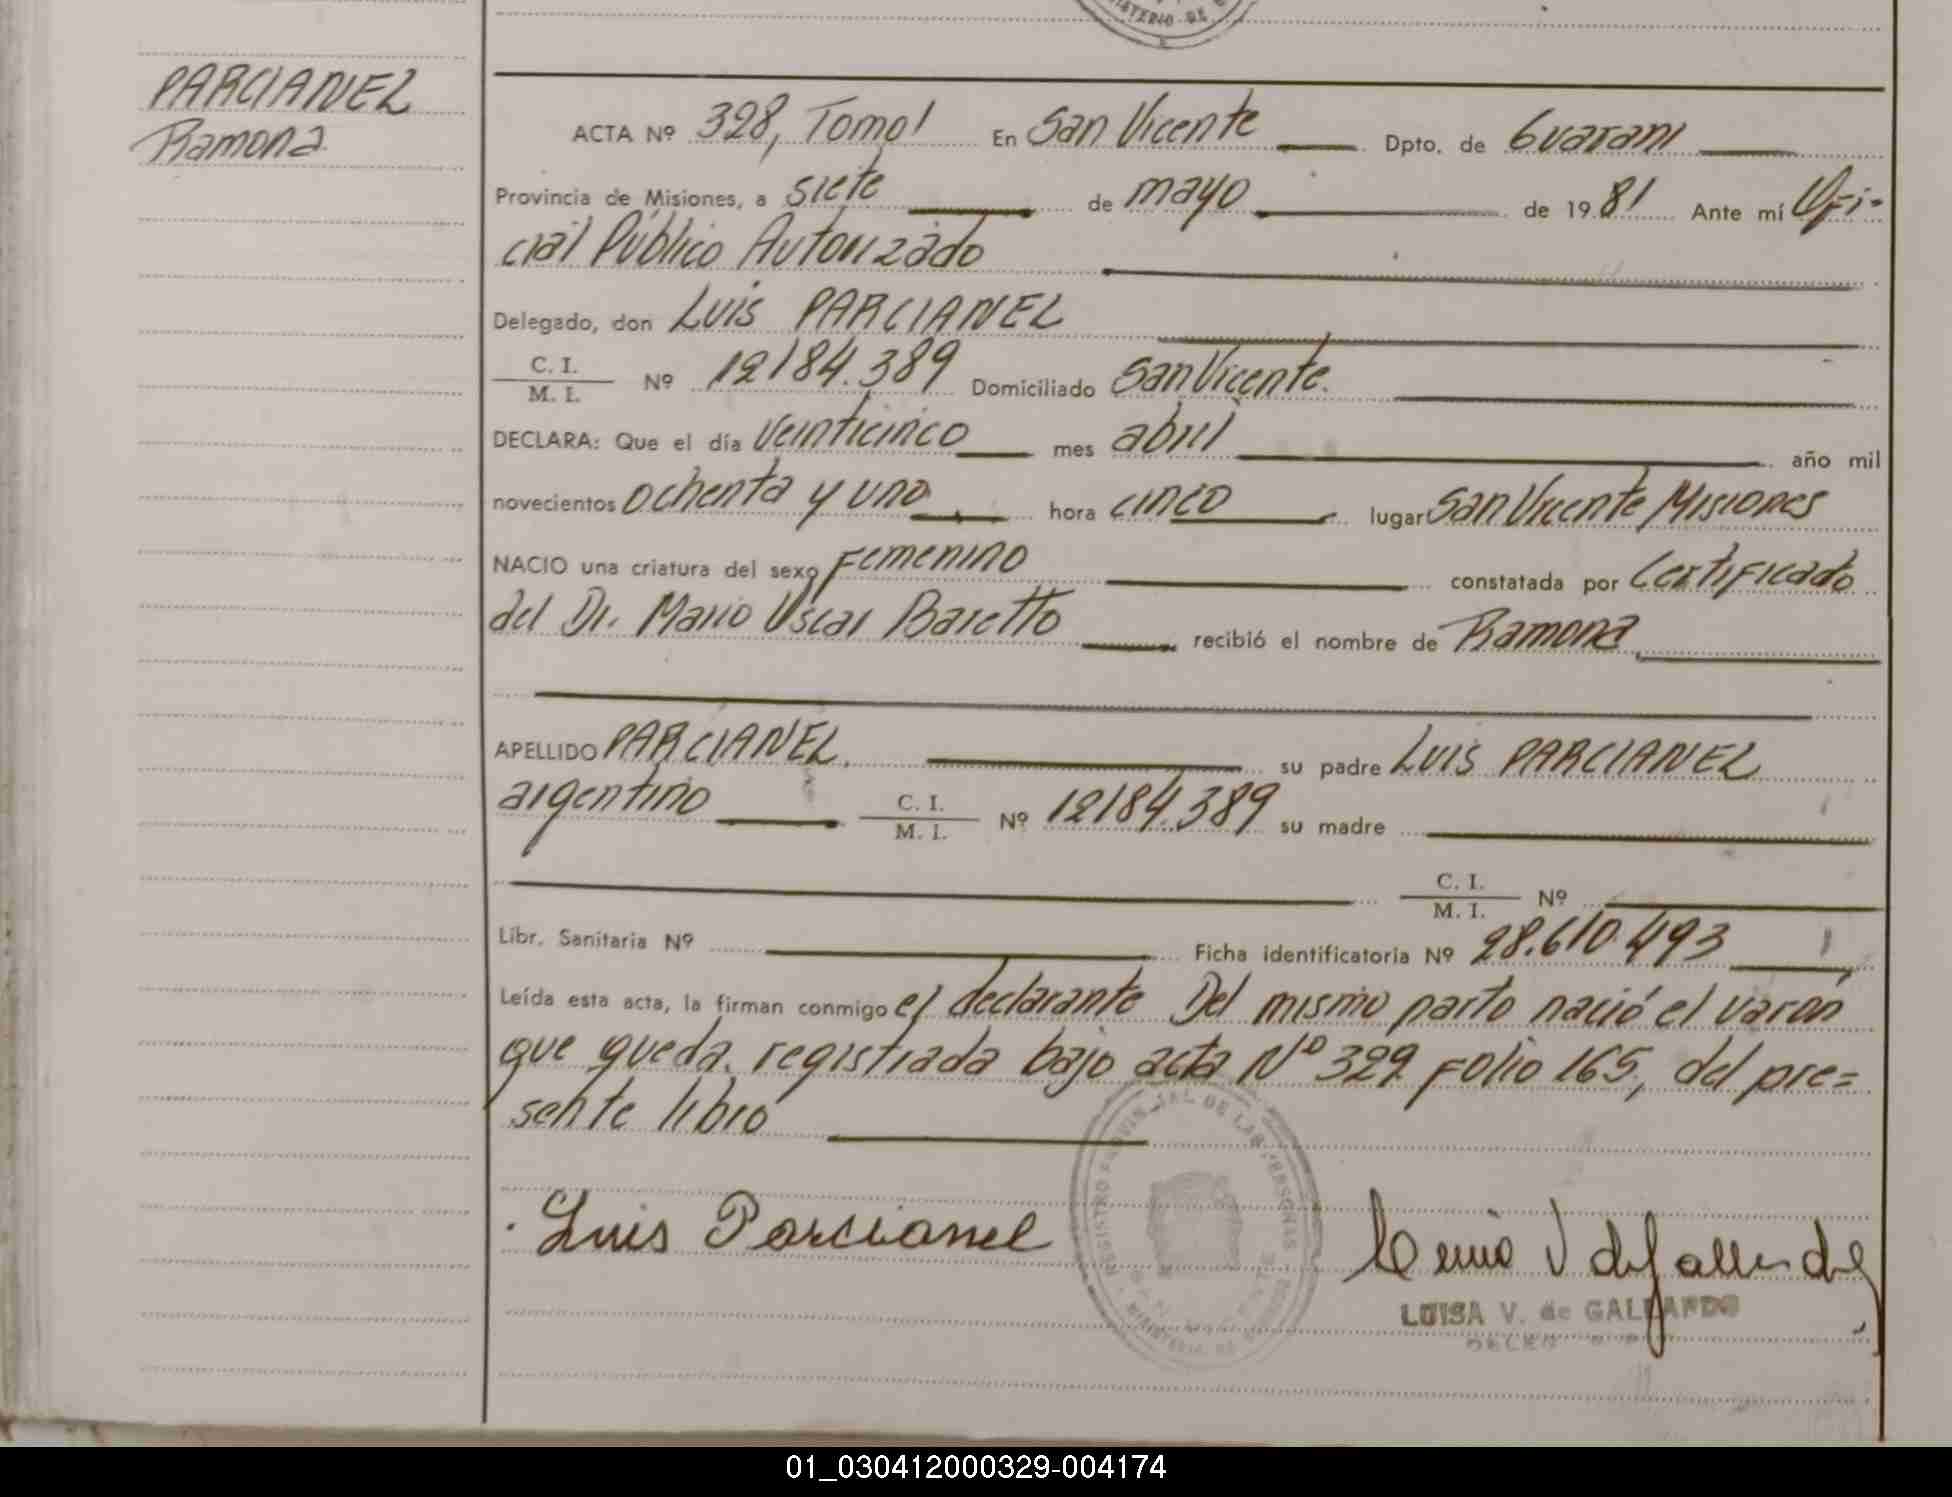 MINISTERIO DE
PARCIANEL
Ramona
ACTA Nº 328, Tomo I En San Vicente Dpto. de Guarani
Provincia de Misiones, a siete de mayo de 1981 Ante mí Ofi-
cial Público Autorizado
Delegado, don Luis PARCIANEL
C. I.
M. I. Nº 12184.389 Domiciliado San Vicente.
DECLARA: Que el día veinticinco mes abril año mil
novecientos ochenta y uno hora cinco lugar San Vicente Misiones
NACIO una criatura del sexo Femenino constatada por Certificado
del Dr. Mario Oscar Baretto recibió el nombre de Ramona
APELLIDO PARCIANEL. su padre Luis PARCIANEL
argentino C. I.
M. I. Nº 12184.389 su madre
C. I.
M. I. Nº
Libr. Sanitaria Nº Ficha identificatoria Nº 28.610.493
Leída esta acta, la firman conmigo el declarante Del mismo parto nació el varon
que queda registrada bajo acta Nº 329 Folio 165, del pre=
sente libro
REGISTRO PROVINCIAL DE LAS PERSONAS
Luis Parcianel
LUISA V. de GALLARDO
01_030412000329-004174